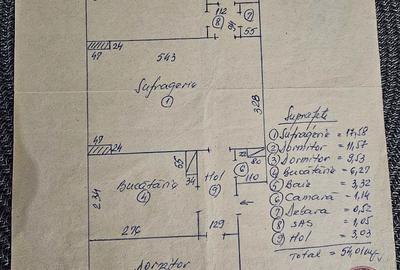 112
⑧
⑦
94
55
24
47
543
Sufragerie
①
328
47
24
55
34
Hol
⑨
22
80
⑥
110
Bucătărie
④
234
276
129
Dormitor
Suprafețe
① Sufragerie = 17,58
② Dormitor = 11,57
③ Dormitor = 9,53
④ Bucătărie = 6,27
⑤ Baie = 3,32
⑥ Camară = 1,14
⑦ Debara = 0,52
⑧ SAS = 1,05
⑨ Hol = 3,03
Total = 54,01 mp